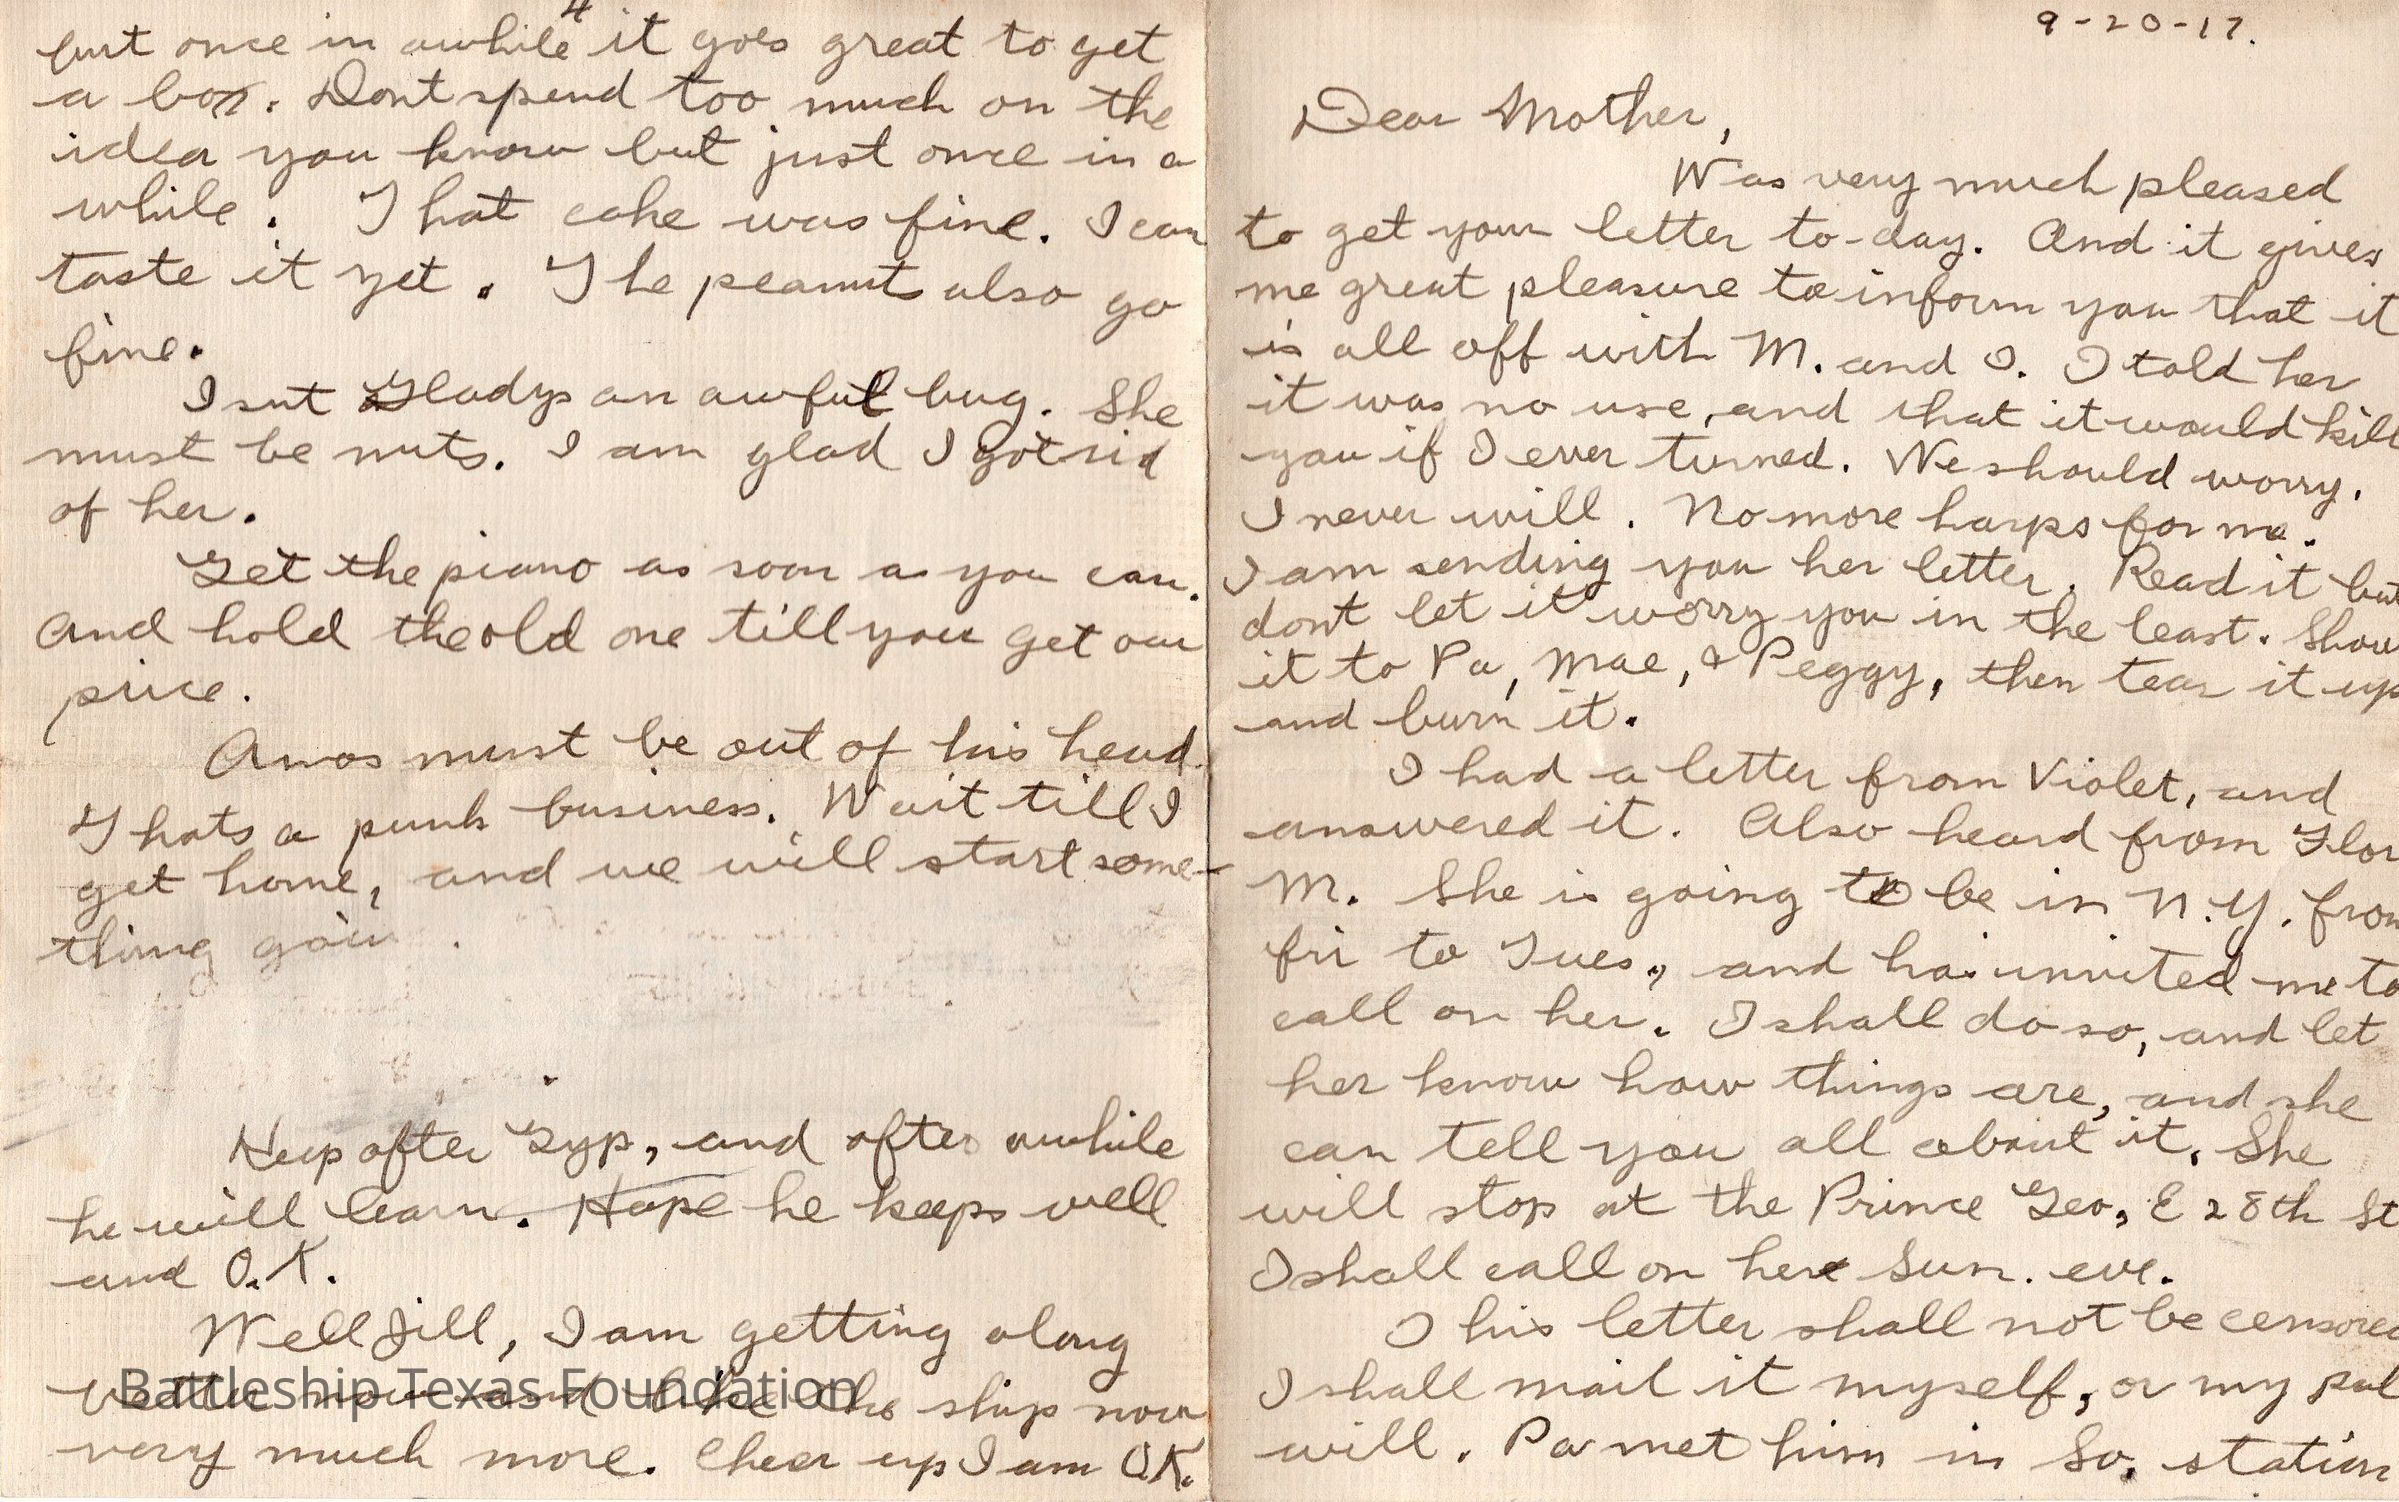 4
but once in awhile it goes great to get
a box. Dont spend too much on the
idea you know but just once in a
while. That cake was fine. I can
taste it yet. The peanuts also go
fine.
Isnt Gladys an awful bug. She
must be nuts. I am glad I got rid
of her.
Get the piano as soon as you can.
And hold the old one till you get our
price.
Amos must be out of his head.
Thats a punk business. Wait till I
get home, and we will start some-
thing goin .
Keep after Gyp, and after awhile
he will learn. Hope he keeps well
and O.K.
Well Jill, I am getting along
better now and like the ship now
very much more. Cheer up I am O.K.
Battleship Texas Foundation
9-20-17.
Dear Mother,
Was very much pleased
to get your letter to-day. And it gives
me great pleasure to inform you that it
is all off with M. and I. I told her
it was no use, and that it would kill
you if I ever turned. We should worry.
I never will. No more harps for me.
I am sending you her letter. Read it but
dont let it worry you in the least. Show
it to Pa, Mae, & Peggy, then tear it up
and burn it.
I had a letter from Violet, and
answered it. Also heard from Flor
M. She is going to be in N.Y. from
fri to Tues., and has invited me to
call on her. I shall do so, and let
her know how things are, and she
can tell you all about it. She
will stop at the Prince Geo, E 28th St
I shall call on her Sun. eve.
This letter shall not be censored
I shall mail it myself, or my pal
will. Pa met him in So. station